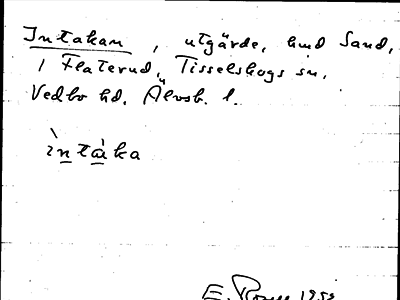 Intakan, utgärde, hmd Sand,
i Flaterud, Tisselskogs sn,
Vedbo hd. Älvsb. l.
ìntàka
E.